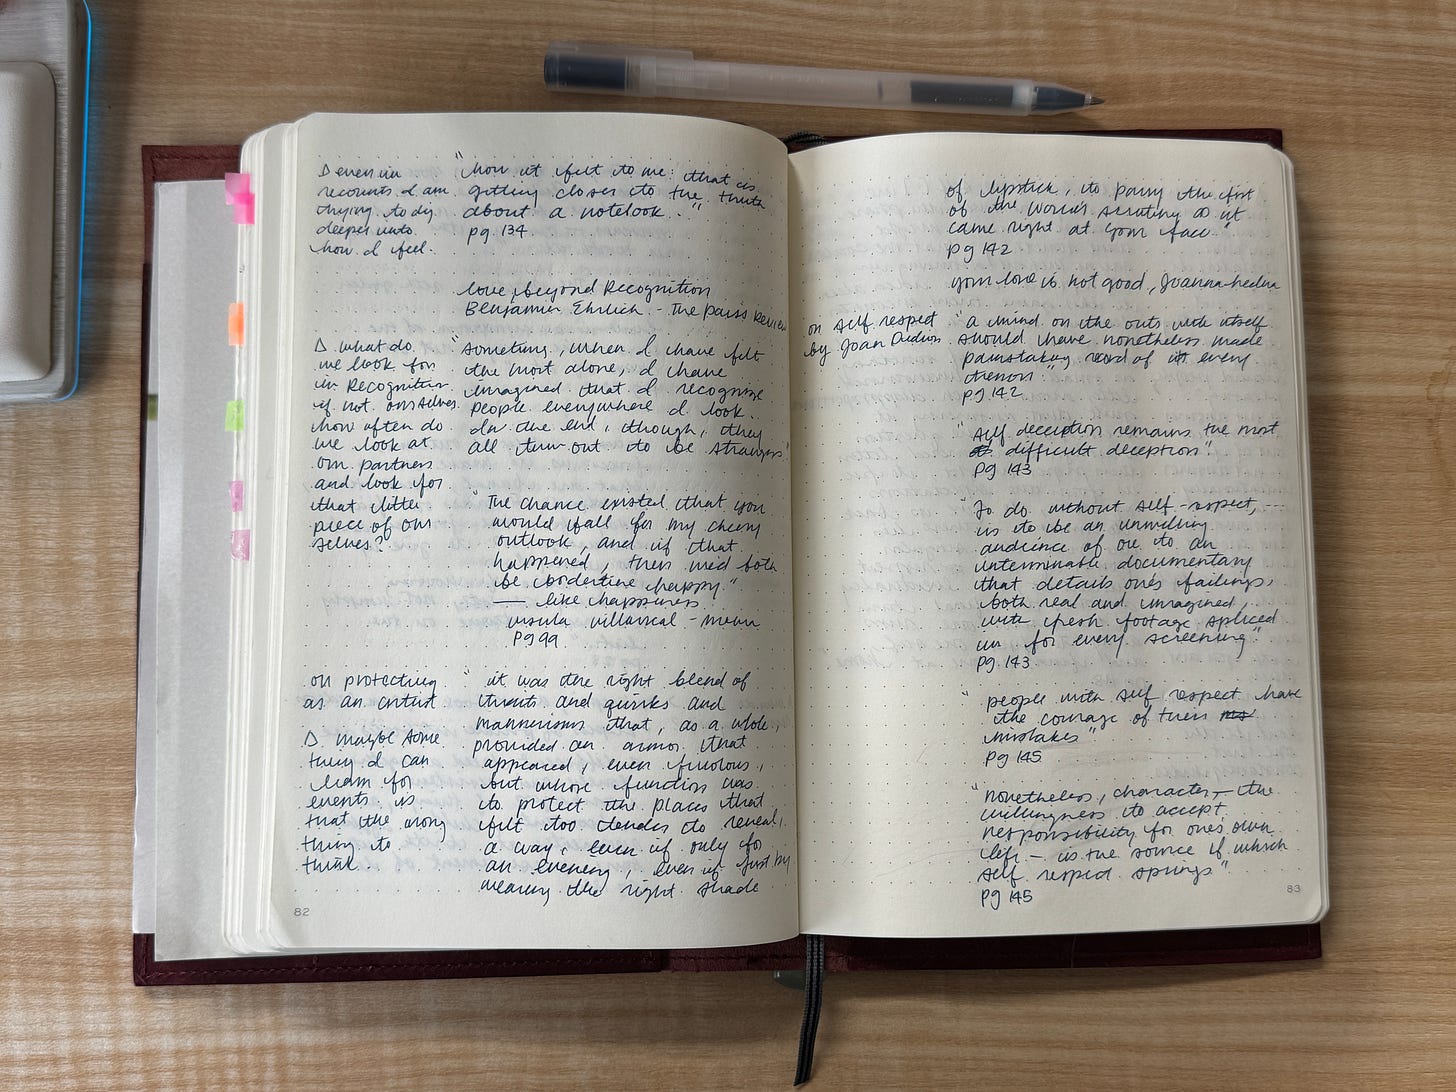 "how it felt to me: that is
getting closer to the truth
about a notebook.."
pg 134
Δ even in
recounts I am
trying to dig
deeper into
how I feel.
love, beyond Recognition
Benjamin Ehrlich - The paris Review
Δ what do
we look for
in Recognition
if not ourselves.
how often do
we look at
our partners
and look for
that little
piece of our
selves?
"sometimes, when I have felt
the most alone, I have
imagined that I recognize
people everywhere I look.
In the end, though, they
all turn out to be strangers"
"The chance existed that you
would fall for my cheery
outlook, and if that
happened, then we'd both
be borderline happy"
— like happiness
ursula villarreal-moura
pg 99
on protecting
as an artist
Δ. maybe some
thing I can
learn for
events is
that the wrong
thing to
think.
"it was the right blend of
and quirks and
mannerisms that, as a whole,
provided an armor that
appeared, even frivolous,
but whose function was
to protect the places that
felt too tender to reveal,
a way, even if only for
an evening, even if just by
wearing the right shade
82
of lipstick, to parry the first
of the world's scrutiny as it
came right at your face."
pg 142
your love is not good, Joanna hedva
on self respect
by Joan Didion
"a mind on the outs with itself
should have nonetheless made
painstaking record of its every
tremor."
pg 142
"self deception remains the most
difficult deception"
pg 143
"To do without self-respect, ---
is to be an unwilling
audience of one to an
interminable documentary
that details one's failings,
both real and imagined,
with fresh footage spliced
in for every screening"
pg 143
"people with self respect have
the courage of their
mistakes"
pg 145
"nonetheless, character — the
willingness to accept
responsibility for one's own
life — is the source if which
self respect springs"
pg 145
83